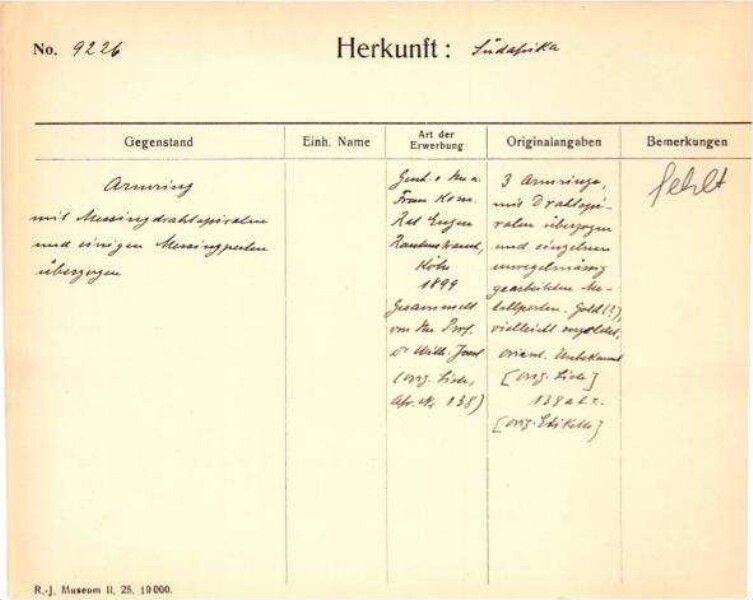 No. 9226
Herkunft: Südafrika
Gegenstand
Einh. Name
Art der
Erwerbung
Originalangaben
Bemerkungen
Armring
mit Messingdrahtspiralen
und einigen Messingperlen
überzogen
Gesch. v. Hn u.
Frau Kom.
Rat Eugen
Rautenstrauch,
Köln
1899
Gesammelt
von Hn Prof.
Dr Wilh. Joest
(orig. Liste,
Afr. Nr 138)
3 Armringe,
mit Drahtspi-
ralen überzogen
und einzelnen
unregelmässig
gearbeiteten Me-
tallperlen. Gold (?),
vielleicht vergoldet,
orient. Unbekannt
[orig. Liste]
138 a b c.
[orig. Etikette]
fehlt
R.-J. Museum II. 25. 10 000.